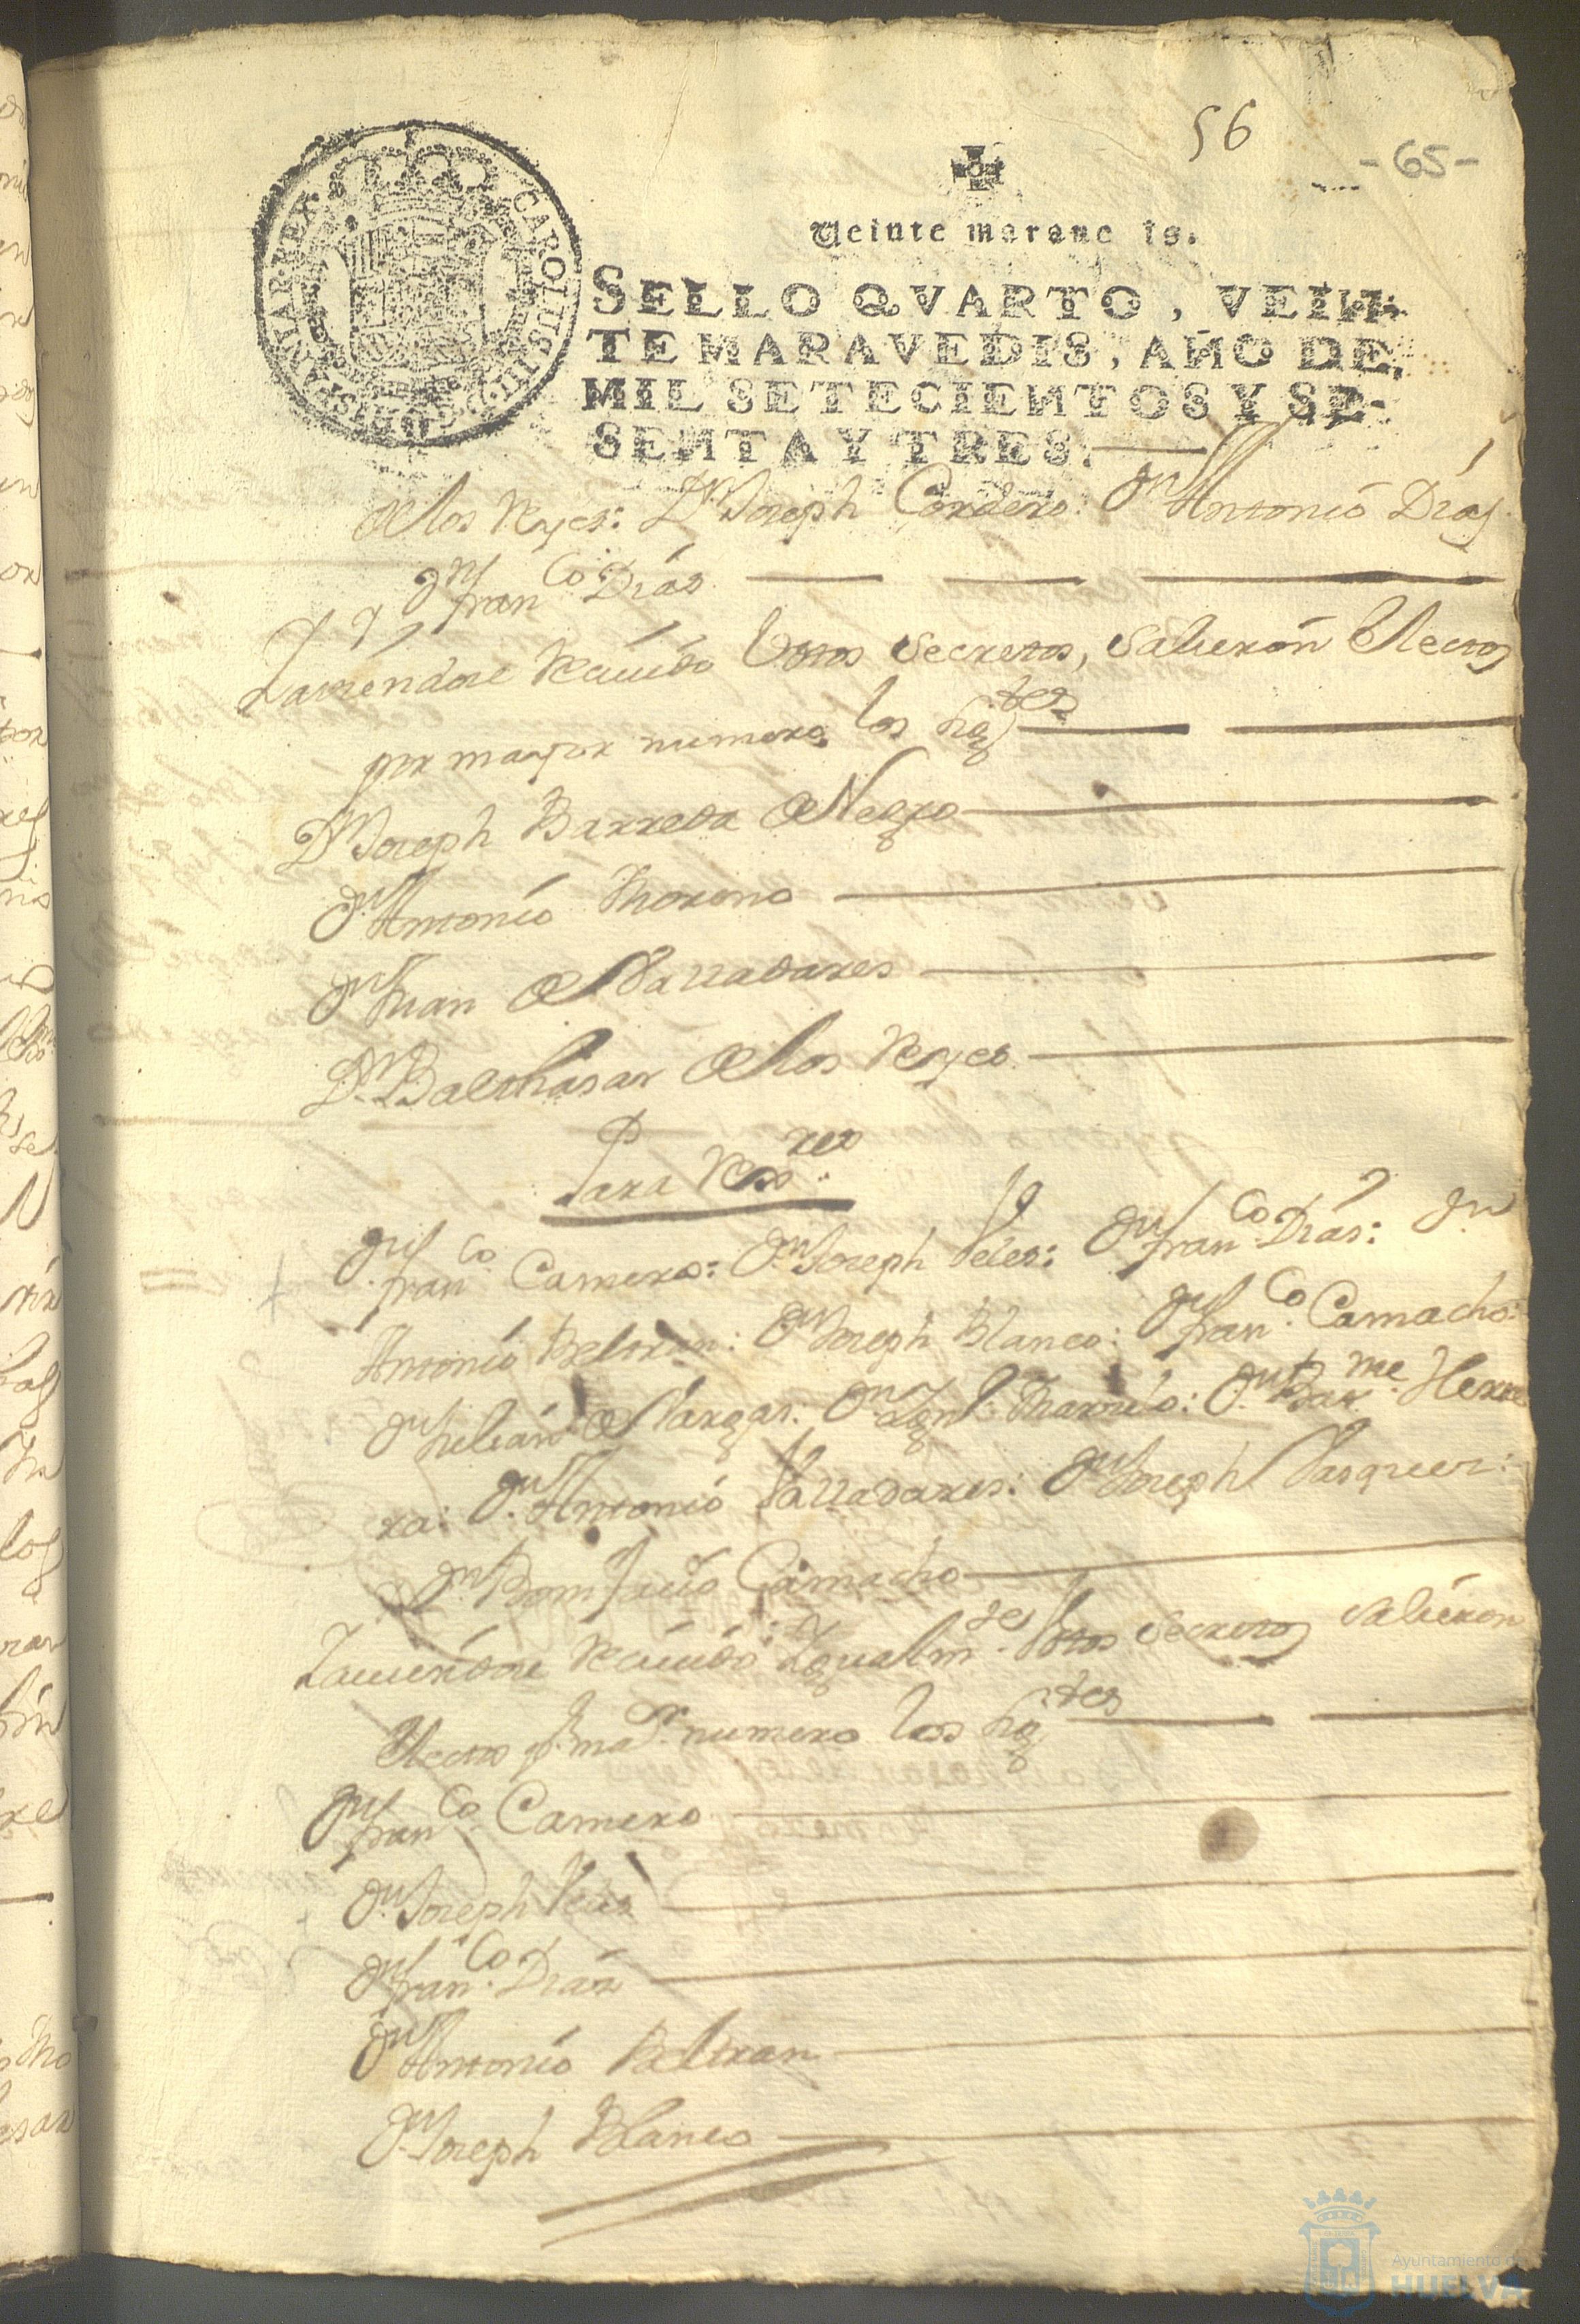 56
-65-
CAROLUS III D G HISPANIAR REX
Veinte marave is.
SELLO QVARTO, VEIN-
TE MARAVEDIS, AÑO DE
MIL SETECIENTOS Y SE-
SENTA Y TRES.
de los Reyes: Dn Joseph Cordero: Dn Antonio Dias
Dn Franco Dias
Y aviendose Recivido Votos Secretos, Salieron Electos
por mayor numero los sigtes
Dn Joseph Barreda de Negro
Dn Antonio Moreno
Dn Juan de Valladares
Dn Balthasar de los Reyes
Para Rexres
Dn Franco Camero: Dn Joseph Veles: Dn Franco Dias: Dn
Antonio Beltran: Dn Joseph Blanco: Dn Franco Camacho:
Dn Julian de Vargas: Dn Ignl: Dn Barme Herre
ra: Dn Antonio Valladares: Dn Joseph Vasques:
Dn Bonifacio Camacho
Y aviendose Recivido Igualmte Votos Secretos Salieron
Electos pr mar numero los sigtes
Dn Franco Camero
Dn Joseph Veles
Dn Franco Dias
Dn Antonio Beltran
Dn Joseph Blanco
Ayuntamiento de
HUELVA